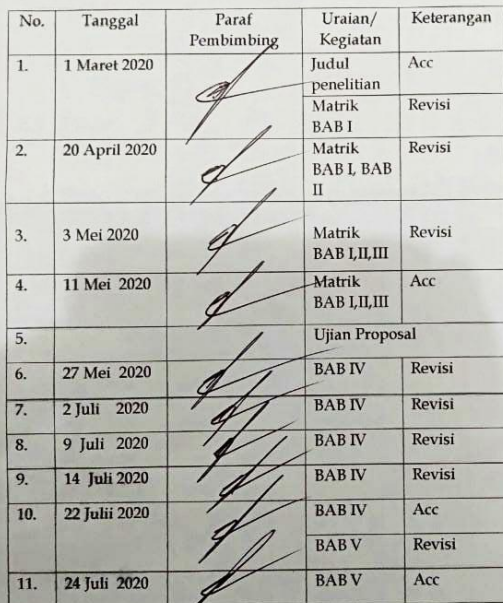 No. Tanggal Paraf Pembimbing Uraian/ Kegiatan Keterangan
1. 1 Maret 2020 Judul penelitian Acc
Matrik BAB I Revisi
2. 20 April 2020 Matrik BAB I, BAB II Revisi
3. 3 Mei 2020 Matrik BAB I,II,III Revisi
4. 11 Mei 2020 Matrik BAB I,II,III Acc
5. Ujian Proposal
6. 27 Mei 2020 BAB IV Revisi
7. 2 Juli 2020 BAB IV Revisi
8. 9 Juli 2020 BAB IV Revisi
9. 14 Juli 2020 BAB IV Revisi
10. 22 Julii 2020 BAB IV Acc
BAB V Revisi
11. 24 Juli 2020 BAB V Acc